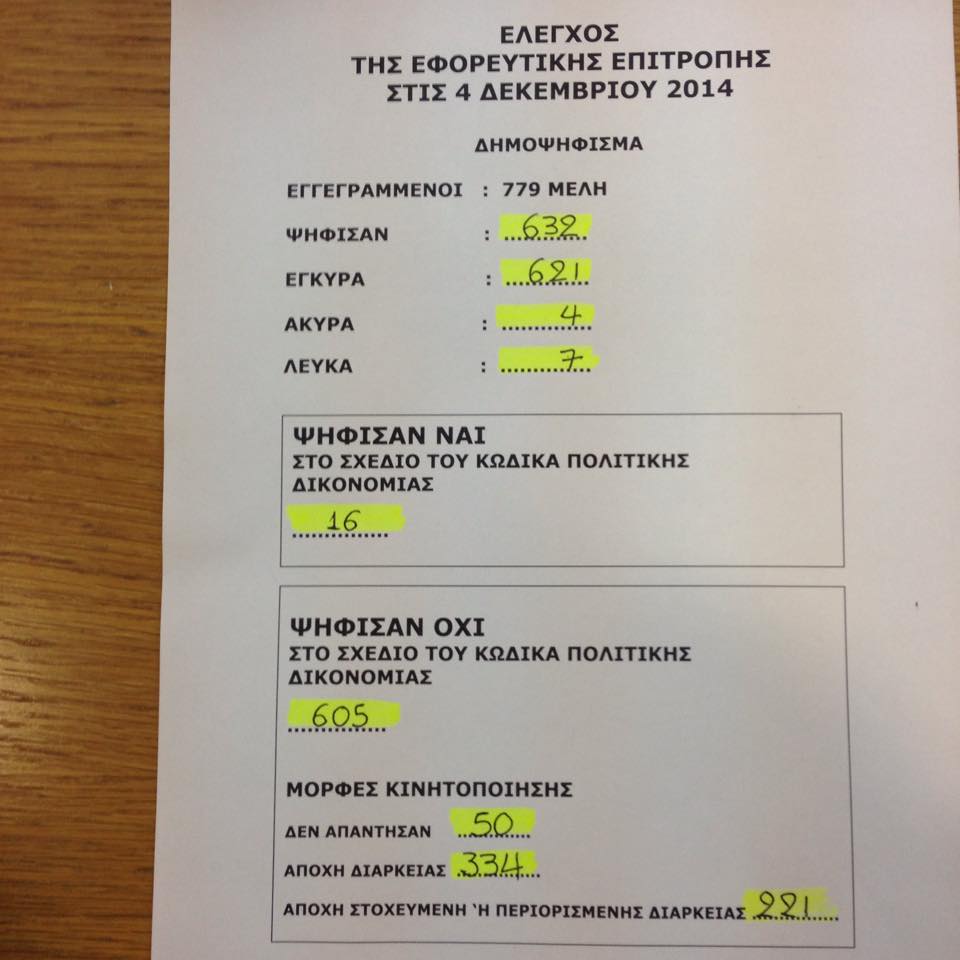 ΕΛΕΓΧΟΣ
ΤΗΣ ΕΦΟΡΕΥΤΙΚΗΣ ΕΠΙΤΡΟΠΗΣ
ΣΤΙΣ 4 ΔΕΚΕΜΒΡΙΟΥ 2014
ΔΗΜΟΨΗΦΙΣΜΑ
ΕΓΓΕΓΡΑΜΜΕΝΟΙ : 779 ΜΕΛΗ
ΨΗΦΙΣΑΝ : 632
ΕΓΚΥΡΑ : 621
ΑΚΥΡΑ : 4
ΛΕΥΚΑ : 7
ΨΗΦΙΣΑΝ ΝΑΙ
ΣΤΟ ΣΧΕΔΙΟ ΤΟΥ ΚΩΔΙΚΑ ΠΟΛΙΤΙΚΗΣ
ΔΙΚΟΝΟΜΙΑΣ
16
ΨΗΦΙΣΑΝ ΟΧΙ
ΣΤΟ ΣΧΕΔΙΟ ΤΟΥ ΚΩΔΙΚΑ ΠΟΛΙΤΙΚΗΣ
ΔΙΚΟΝΟΜΙΑΣ
605
ΜΟΡΦΕΣ ΚΙΝΗΤΟΠΟΙΗΣΗΣ
ΔΕΝ ΑΠΑΝΤΗΣΑΝ 50
ΑΠΟΧΗ ΔΙΑΡΚΕΙΑΣ 334
ΑΠΟΧΗ ΣΤΟΧΕΥΜΕΝΗ 'Η ΠΕΡΙΟΡΙΣΜΕΝΗΣ ΔΙΑΡΚΕΙΑΣ 221